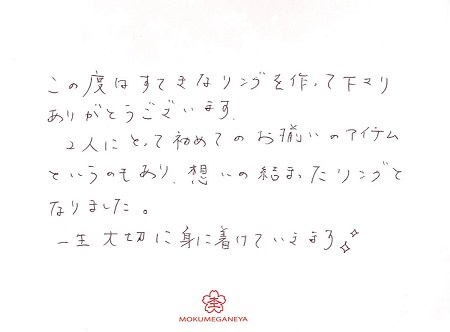 この度はすてきなリングを作って下さり
ありがとうございます。
2人にとって初めてのお揃いのアイテム
というのもあり、想いの結まったリングと
なりました。
一生大切に身に着けていきます
MOKUMEGANEYA